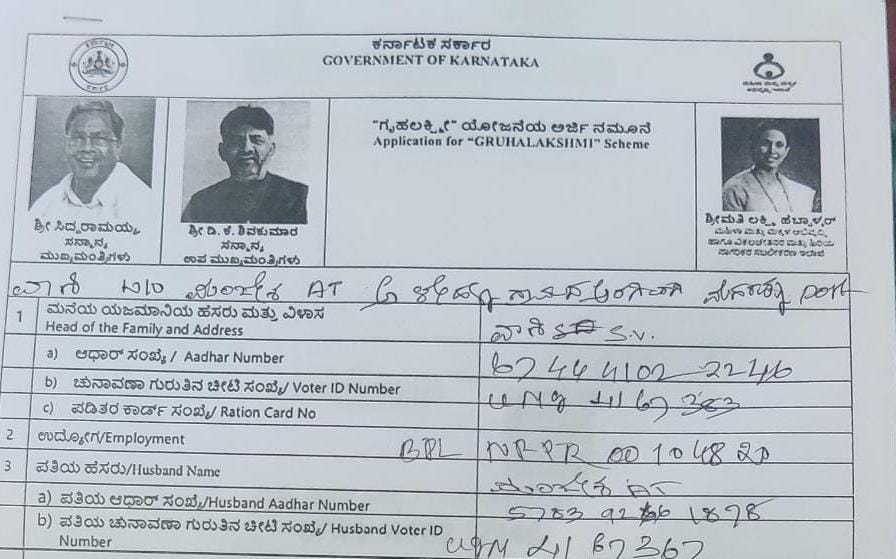 ಕರ್ನಾಟಕ ಸರ್ಕಾರ
GOVERNMENT OF KARNATAKA
"ಗೃಹಲಕ್ಷ್ಮೀ" ಯೋಜನೆಯ ಅರ್ಜಿ ನಮೂನೆ
Application for "GRUHALAKSHMI" Scheme
ಶ್ರೀ ಸಿದ್ದರಾಮಯ್ಯ
ಸನ್ಮಾನ್ಯ
ಮುಖ್ಯಮಂತ್ರಿಗಳು
ಶ್ರೀ ಡಿ. ಕೆ. ಶಿವಕುಮಾರ
ಸನ್ಮಾನ್ಯ
ಉಪ ಮುಖ್ಯಮಂತ್ರಿಗಳು
ಶ್ರೀಮತಿ ಲಕ್ಷ್ಮಿ ಹೆಬ್ಬಾಳ್ಕರ್
ಮಹಿಳಾ ಮತ್ತು ಮಕ್ಕಳ ಅಭಿವೃದ್ಧಿ
ಹಾಗೂ ವಿಕಲಚೇತನರ ಮತ್ತು ಹಿರಿಯ
ನಾಗರಿಕರ ಸಬಲೀಕರಣ ಇಲಾಖೆ
ವಾಣಿ W/O AT
1 ಮನೆಯ ಯಜಮಾನಿಯ ಹೆಸರು ಮತ್ತು ವಿಳಾಸ
Head of the Family and Address
ವಾಣಿ S.V.
a) ಆಧಾರ್ ಸಂಖ್ಯೆ / Aadhar Number
6744 4102 2246
b) ಚುನಾವಣಾ ಗುರುತಿನ ಚೀಟಿ ಸಂಖ್ಯೆ/ Voter ID Number
c) ಪಡಿತರ ಕಾರ್ಡ್ ಸಂಖ್ಯೆ/ Ration Card No
2 ಉದ್ಯೋಗ/Employment
BPL
3 ಪತಿಯ ಹೆಸರು/Husband Name
AT
a) ಪತಿಯ ಆಧಾರ್ ಸಂಖ್ಯೆ/Husband Aadhar Number
b) ಪತಿಯ ಚುನಾವಣಾ ಗುರುತಿನ ಚೀಟಿ ಸಂಖ್ಯೆ/ Husband Voter ID
Number